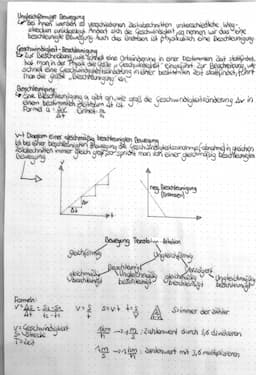 Ungleichförmige Bewegung
↳ Bei ihnen werden in verschiedenen Zeitabschnitten unterschiedliche Weg-
strecken zurückgelegt. Ändert sich die Geschwindigkeit, so nennen wir das eine
beschleunigte Bewegung. Auch das Bremsen ist physikalisch eine Beschleunigung.
Geschwindigkeit - Beschleunigung
↳ Zur Beschreibung, wie schnell eine Ortsänderung in einer bestimmten Zeit stattfindet,
hat man in der Physik die Größe „Geschwindigkeit“ eingeführt. Zur Beschreibung, wie
schnell eine Geschwindigkeitsänderung in einer bestimmten Zeit stattfindet, führt
man die Größe „Beschleunigung“ ein.
Beschleunigung
↳ Eine Beschleunigung a gibt an, wie groß die Geschwindigkeitsänderung Δv in
einem bestimmten Zeitabschnitt Δt ist.
Formel a = Δv/Δt Einheit: m/s²
v-t Diagramm einer gleichmäßig beschleunigten Bewegung
Ist bei einer beschleunigten Bewegung die Geschwindigkeitszunahme/-abnahme in gleichen
Zeitabschnitten immer gleich groß, so spricht man von einer gleichmäßig beschleunigten
Bewegung
v
v
neg. Beschleunigung
(Bremsen)
Δv
Δt
t
t
Bewegung Translation - Rotation
gleichförmig
Ungleichförmig
Beschleunigt
Verzögert
gleichmäßig beschleunigt
Ungleichmäßig beschleunigt
gleichmäßig beschleunigt
Ungleichmäßig beschleunigt
Formeln:
v = Δs/Δt = s₂-s₁/t₂-t₁ v = s/t s = v·t t = s/v S immer der Zähler
v = Geschwindigkeit
s = Strecke
t = Zeit
km/h → m/s : Zahlenwert durch 3,6 dividieren
m/s → km/h : Zahlenwert mit 3,6 multiplizieren